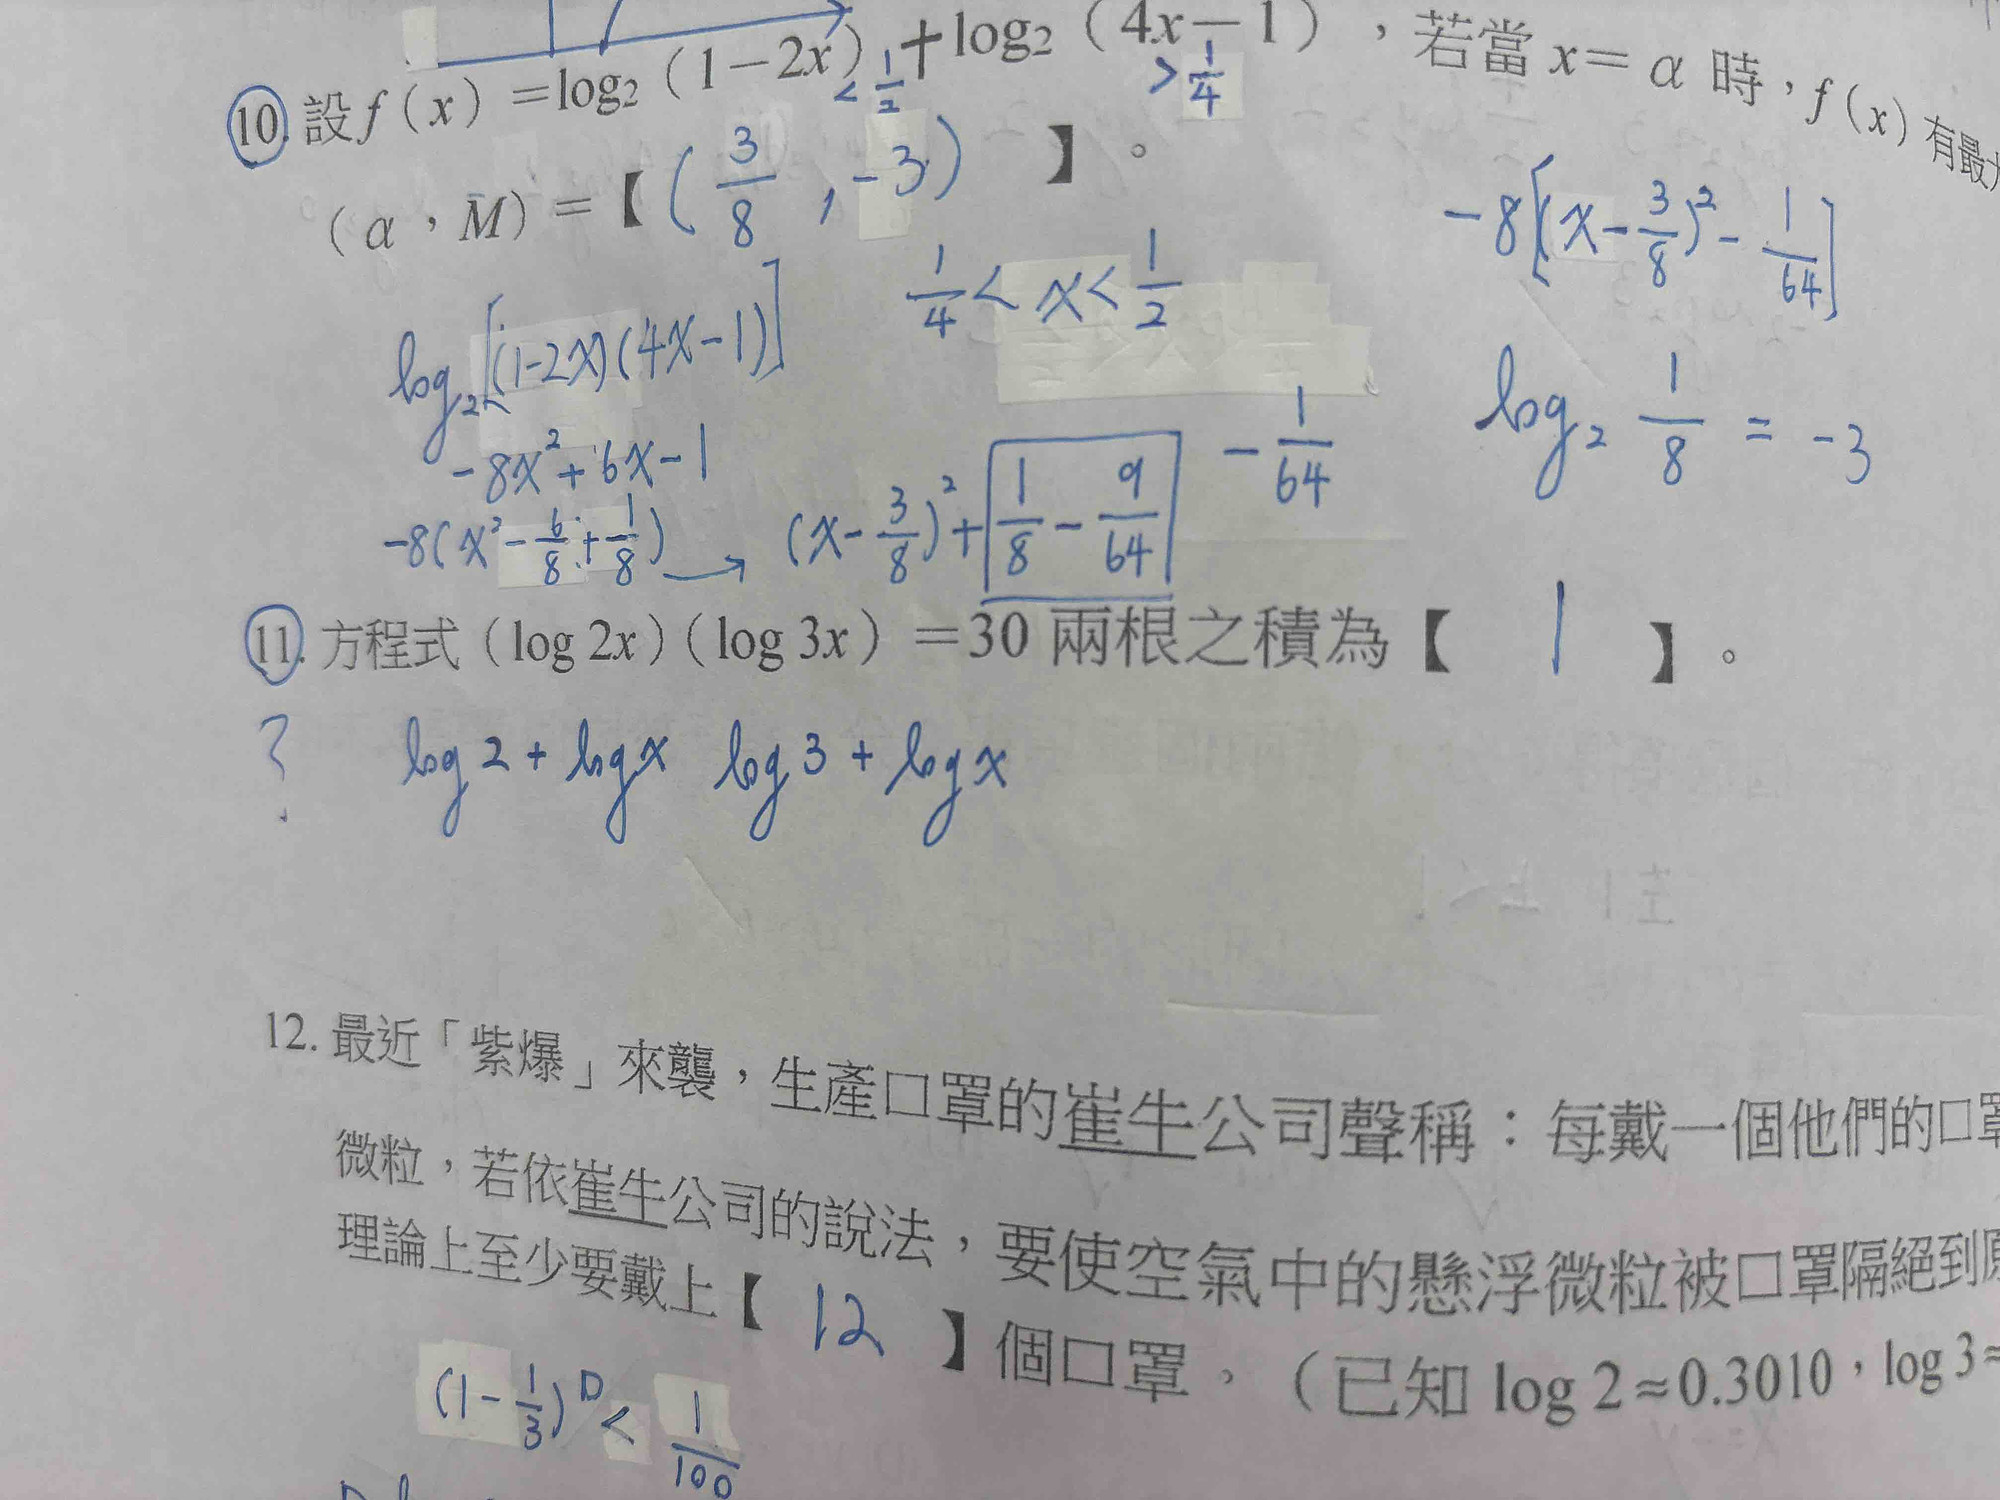 10. 設 f(x)=log₂(1-2x)+log₂(4x-1)，若當 x=α 時，f(x)有最
< 1/2
> 1/4
(α，M)=【(3/8, -3)】。
-8[(x-3/8)²-1/64]
1/4 < x < 1/2
log₂[(1-2x)(4x-1)]
log₂ 1/8 = -3
-8x²+6x-1
-8(x²-6/8+1/8) → (x-3/8)²+ 1/8-9/64
-1/64
11. 方程式(log 2x)(log 3x)=30 兩根之積為【 1 】。
? log 2 + log x log 3 + log x
12. 最近「紫爆」來襲，生產口罩的崔牛公司聲稱：每戴一個他們的口罩
微粒，若依崔牛公司的說法，要使空氣中的懸浮微粒被口罩隔絕到原
理論上至少要戴上【 12 】個口罩。（已知 log 2≈0.3010，log 3≈
(1-1/3)ᴰ < 1/100